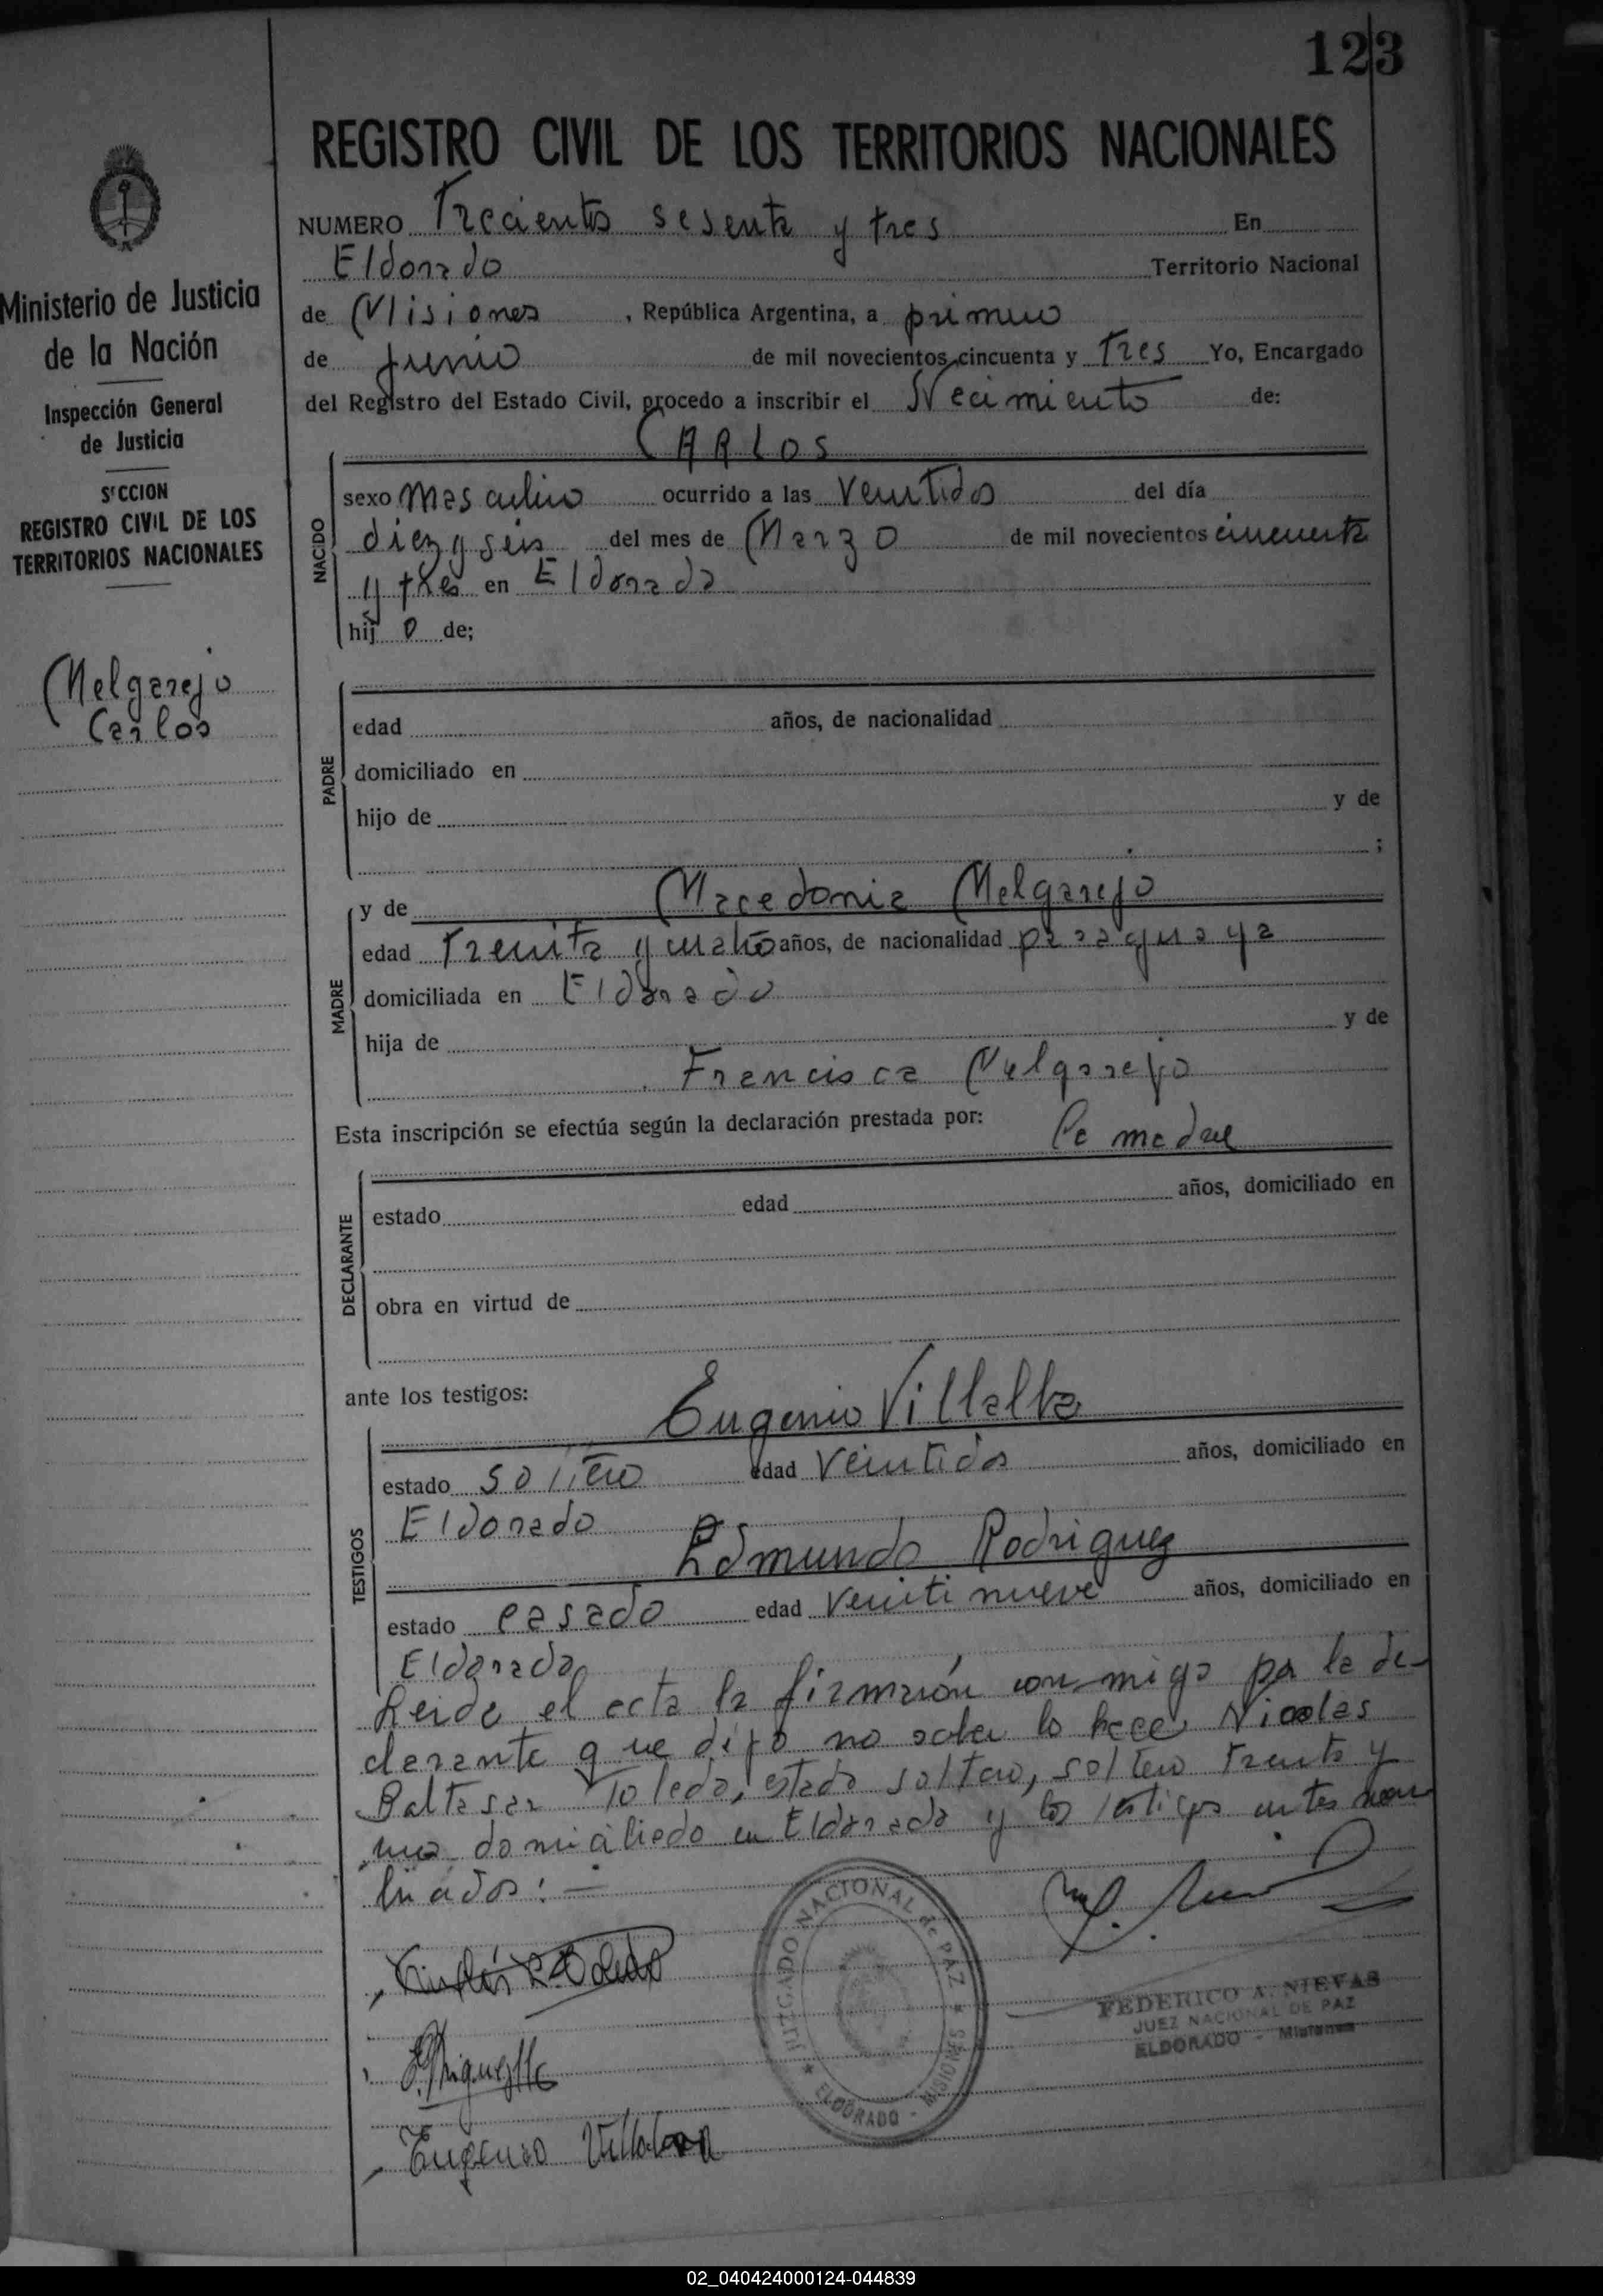 123
REGISTRO CIVIL DE LOS TERRITORIOS NACIONALES
NUMERO Trecientos sesenta y tres En
Eldorado Territorio Nacional
de Misiones , República Argentina, a primero
de junio de mil novecientos cincuenta y Tres Yo, Encargado
del Registro del Estado Civil, procedo a inscribir el Nacimiento de:
Ministerio de Justicia
de la Nación
Inspección General
de Justicia
S'CCION
REGISTRO CIVIL DE LOS
TERRITORIOS NACIONALES
Melgarejo
Carlos
CARLOS
NACIDO
sexo masculino ocurrido a las veintidos del día
diez y seis del mes de Marzo de mil novecientos cincuenta
y tres en Eldorado
hij o de;
PADRE
edad años, de nacionalidad
domiciliado en
hijo de y de
;
MADRE
y de Macedonia Melgarejo
edad Treinta y cuatro años, de nacionalidad paraguaya
domiciliada en Eldorado
hija de y de
Francisca Melgarejo
Esta inscripción se efectúa según la declaración prestada por: la madre
DECLARANTE
estado edad años, domiciliado en
obra en virtud de
ante los testigos: Eugenio Villalba
TESTIGOS
estado soltero edad veintidos años, domiciliado en
Eldorado
Edmundo Rodriguez
estado casado edad veinti nueve años, domiciliado en
Eldorado
Leida el acta la firmarón con migo por la de-
clarante que dijo no saber lo hace Nicolas
Baltasar Toledo, estado soltero, soltero treinta y
domiciliado en Eldorado y los testigos antes nom
brados: —
JUZGADO NACIONAL de PAZ ★ ELDORADO - MISIONES ★
FEDERICO A. NIEVAS
JUEZ NACIONAL DE PAZ
ELDORADO - Misiones
Eugenio Villalba
02_040424000124-044839